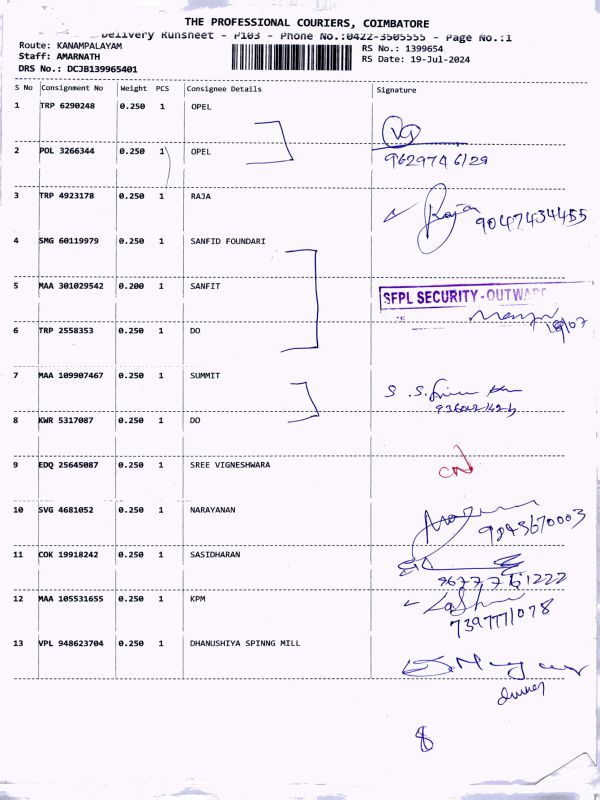 THE PROFESSIONAL COURIERS, COIMBATORE
Delivery Runsheet - P103 - Phone No.:0422-3505555 - Page No.:1
Route: KANAMPALAYAM RS No.: 1399654
Staff: AMARNATH RS Date: 19-Jul-2024
DRS No.: DCJB139965401
S No Consignment No Weight PCS Consignee Details Signature
1 TRP 6290248 0.250 1 OPEL
2 POL 3266344 0.250 1 OPEL 9629746129
3 TRP 4923178 0.250 1 RAJA Raja 9047434455
4 SMG 60119979 0.250 1 SANFID FOUNDARI
5 MAA 301029542 0.200 1 SANFIT SFPL SECURITY-OUTWARD
6 TRP 2558353 0.250 1 DO
7 MAA 109907467 0.250 1 SUMMIT
8 KWR 5317087 0.250 1 DO
9 EDQ 25645087 0.250 1 SREE VIGNESHWARA CN
10 SVG 4681052 0.250 1 NARAYANAN 9843670003
11 COK 19918242 0.250 1 SASIDHARAN
12 MAA 105531655 0.250 1 KPM 7397771078
13 VPL 948623704 0.250 1 DHANUSHIYA SPINNG MILL
8